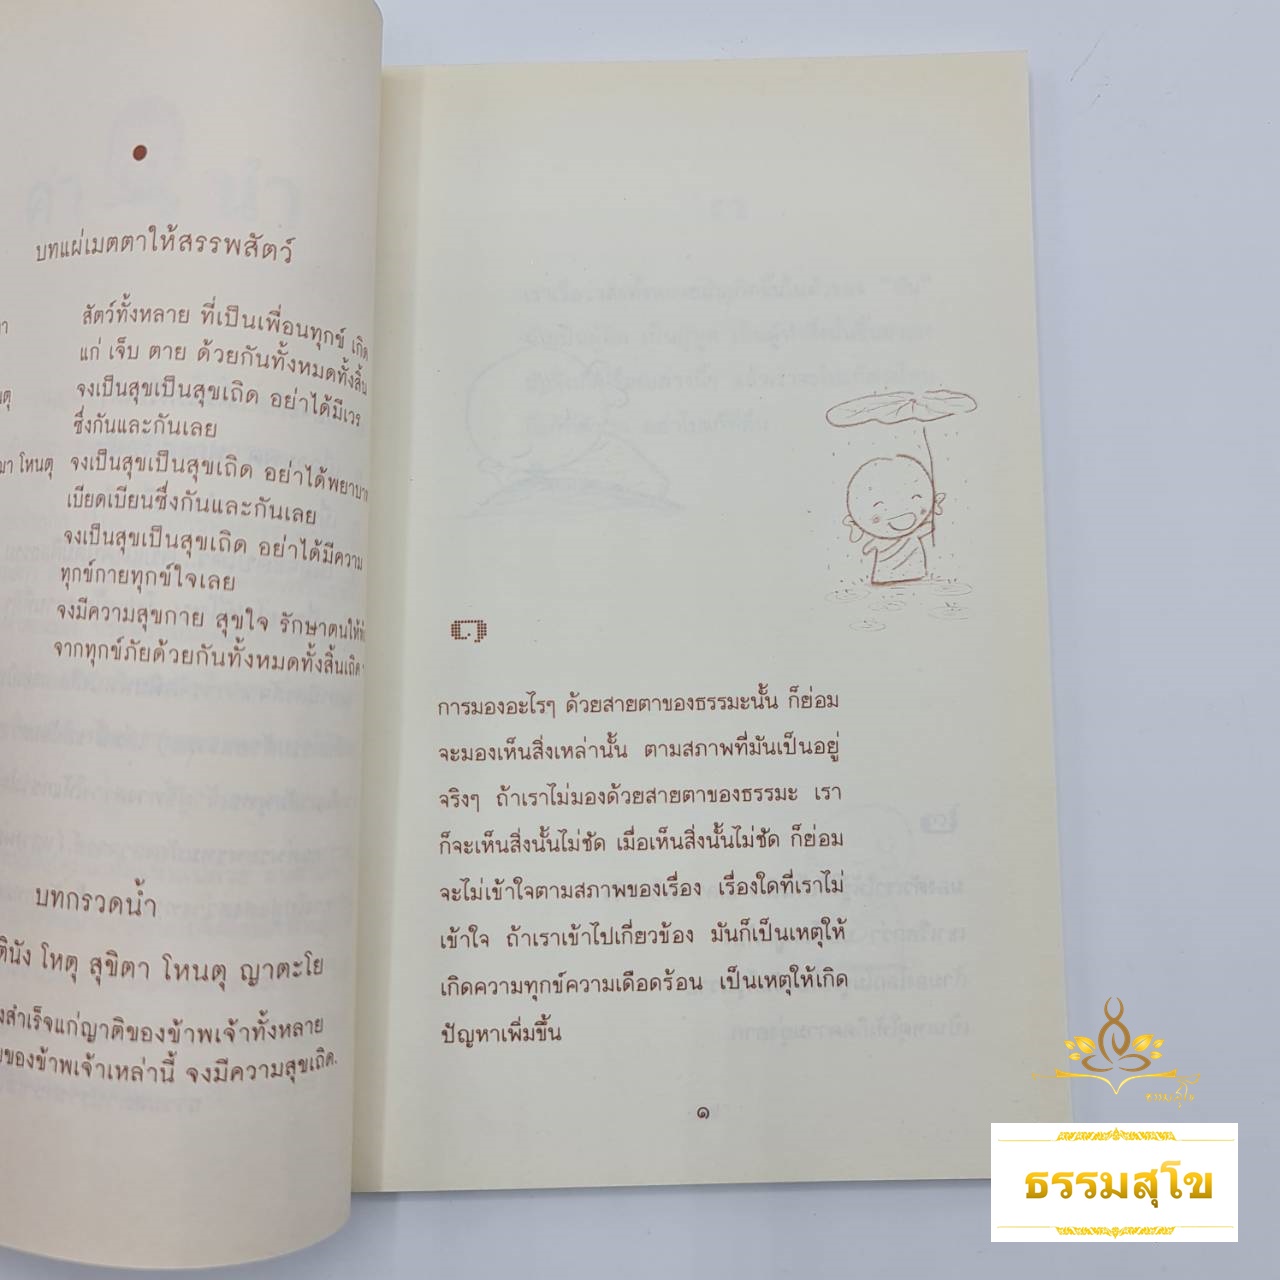 บทแผ่เมตตาให้สรรพสัตว์
สัตว์ทั้งหลาย ที่เป็นเพื่อนทุกข์ เกิด
แก่ เจ็บ ตาย ด้วยกันทั้งหมดทั้งสิ้น
จงเป็นสุขเป็นสุขเถิด อย่าได้มีเวร
ซึ่งกันและกันเลย
มา โหนตุ จงเป็นสุขเป็นสุขเถิด อย่าได้พยาบาท
เบียดเบียนซึ่งกันและกันเลย
จงเป็นสุขเป็นสุขเถิด อย่าได้มีความ
ทุกข์กายทุกข์ใจเลย
จงมีความสุขกาย สุขใจ รักษาตนให้พ้น
จากทุกข์ภัยด้วยกันทั้งหมดทั้งสิ้นเถิด
บทกรวดน้ำ
ตินัง โหตุ สุขิตา โหนตุ ญาตะโย
งสำเร็จแก่ญาติของข้าพเจ้าทั้งหลาย
ของข้าพเจ้าเหล่านี้ จงมีความสุขเถิด.
๑
การมองอะไรๆ ด้วยสายตาของธรรมะนั้น ก็ย่อม
จะมองเห็นสิ่งเหล่านั้น ตามสภาพที่มันเป็นอยู่
จริงๆ ถ้าเราไม่มองด้วยสายตาของธรรมะ เรา
ก็จะเห็นสิ่งนั้นไม่ชัด เมื่อเห็นสิ่งนั้นไม่ชัด ก็ย่อม
จะไม่เข้าใจตามสภาพของเรื่อง เรื่องใดที่เราไม่
เข้าใจ ถ้าเราเข้าไปเกี่ยวข้อง มันก็เป็นเหตุให้
เกิดความทุกข์ความเดือดร้อน เป็นเหตุให้เกิด
ปัญหาเพิ่มขึ้น
๑
ธรรมสุโข
ธรรมสุโข